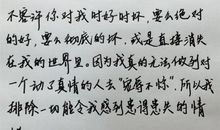 不容许你对我时好时坏，要么绝对
的好，要么彻底的坏，或是直接消失
在我的世界里。因为我真的无法做到对
一个动了真情的人去“宠辱不惊”。所以我
排除一切能令我感到患得患失的情